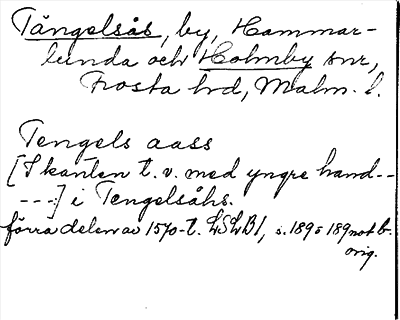 Tängelsås, by, Hammar-
lunda och Holmby snr,
Frosta hd, Malm. l.
Tengels aass
[I kanten t. v. med yngre hand--
---] i Tengelsåhs.
förra delen av 1570-t. LSLB1, s. 189 not b.
orig.